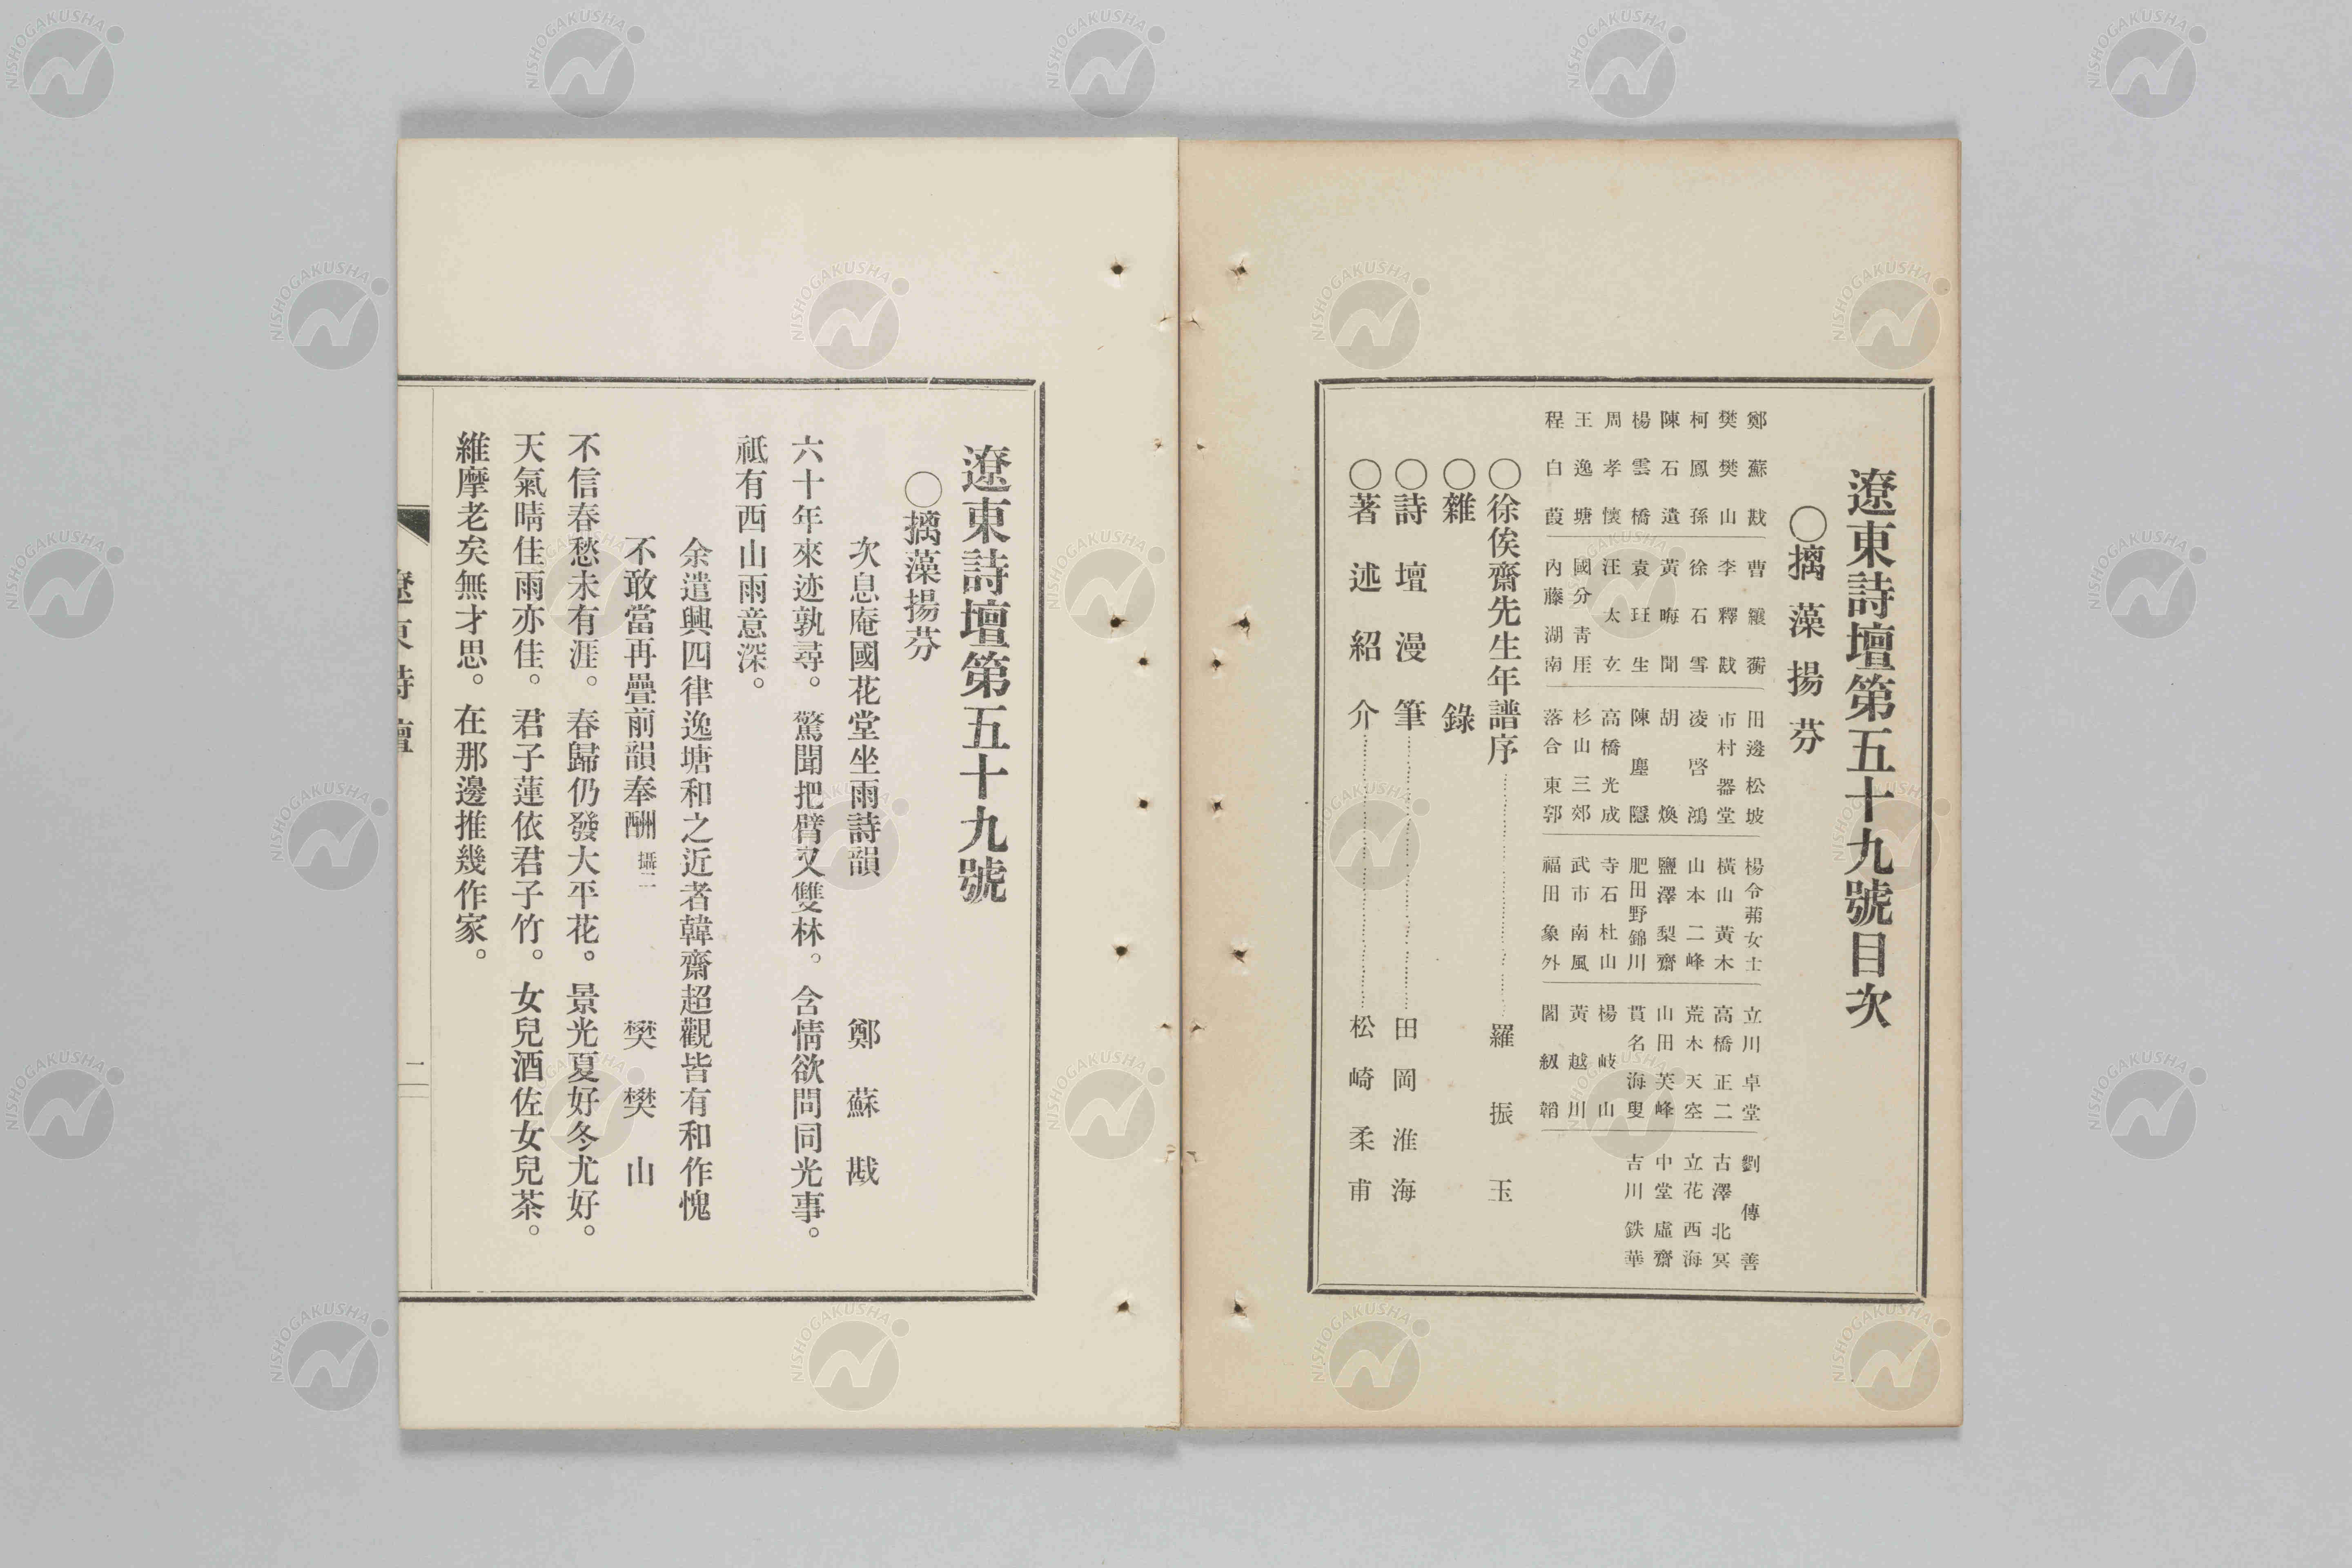 遼東詩壇第五十九號目次
〇摛藻揚芬
鄭蘇戡
樊樊山
柯鳳孫
陳石遺
楊雲橋
周孝懷
王逸塘
程白葭
曹纕蘅
李釋戡
徐石雪
黃晦聞
袁玨生
汪太玄
國分青厓
內藤湖南
田邊松坡
市村器堂
凌啓鴻
胡煥
陳塵隱
高橋光成
杉山三郊
落合東郭
楊令茀女士
橫山黃木
山本二峰
鹽澤梨齋
肥田野錦川
寺石杜山
武市南風
福田象外
立川卓堂
高橋正二
荒木天空
山田芙峰
貫名海叟
楊岐山
黃越川
閻級韜
劉傳善
古澤北冥
立花西海
中堂虛齋
吉川鉄華
〇徐俟齋先生年譜序………羅振玉
〇雜錄
〇詩壇漫筆………田岡淮海
〇著述紹介………松崎柔甫
遼東詩壇第五十九號
〇摛藻揚芬
次息庵國花堂坐雨詩韻 鄭蘇戡
六十年來迹孰尋。驚聞把臂又雙林。含情欲問同光事。
祗有西山雨意深。
余遣興四律逸塘和之近者韓齋超觀皆有和作愧
不敢當再疊前韻奉酬 攝二 樊樊山
不信春愁未有涯。春歸仍發大平花。景光夏好冬尤好。
天氣晴佳雨亦佳。君子蓮依君子竹。女兒酒佐女兒茶。
維摩老矣無才思。在那邊推幾作家。
遼東詩壇
一
NISHOGAKUSHA